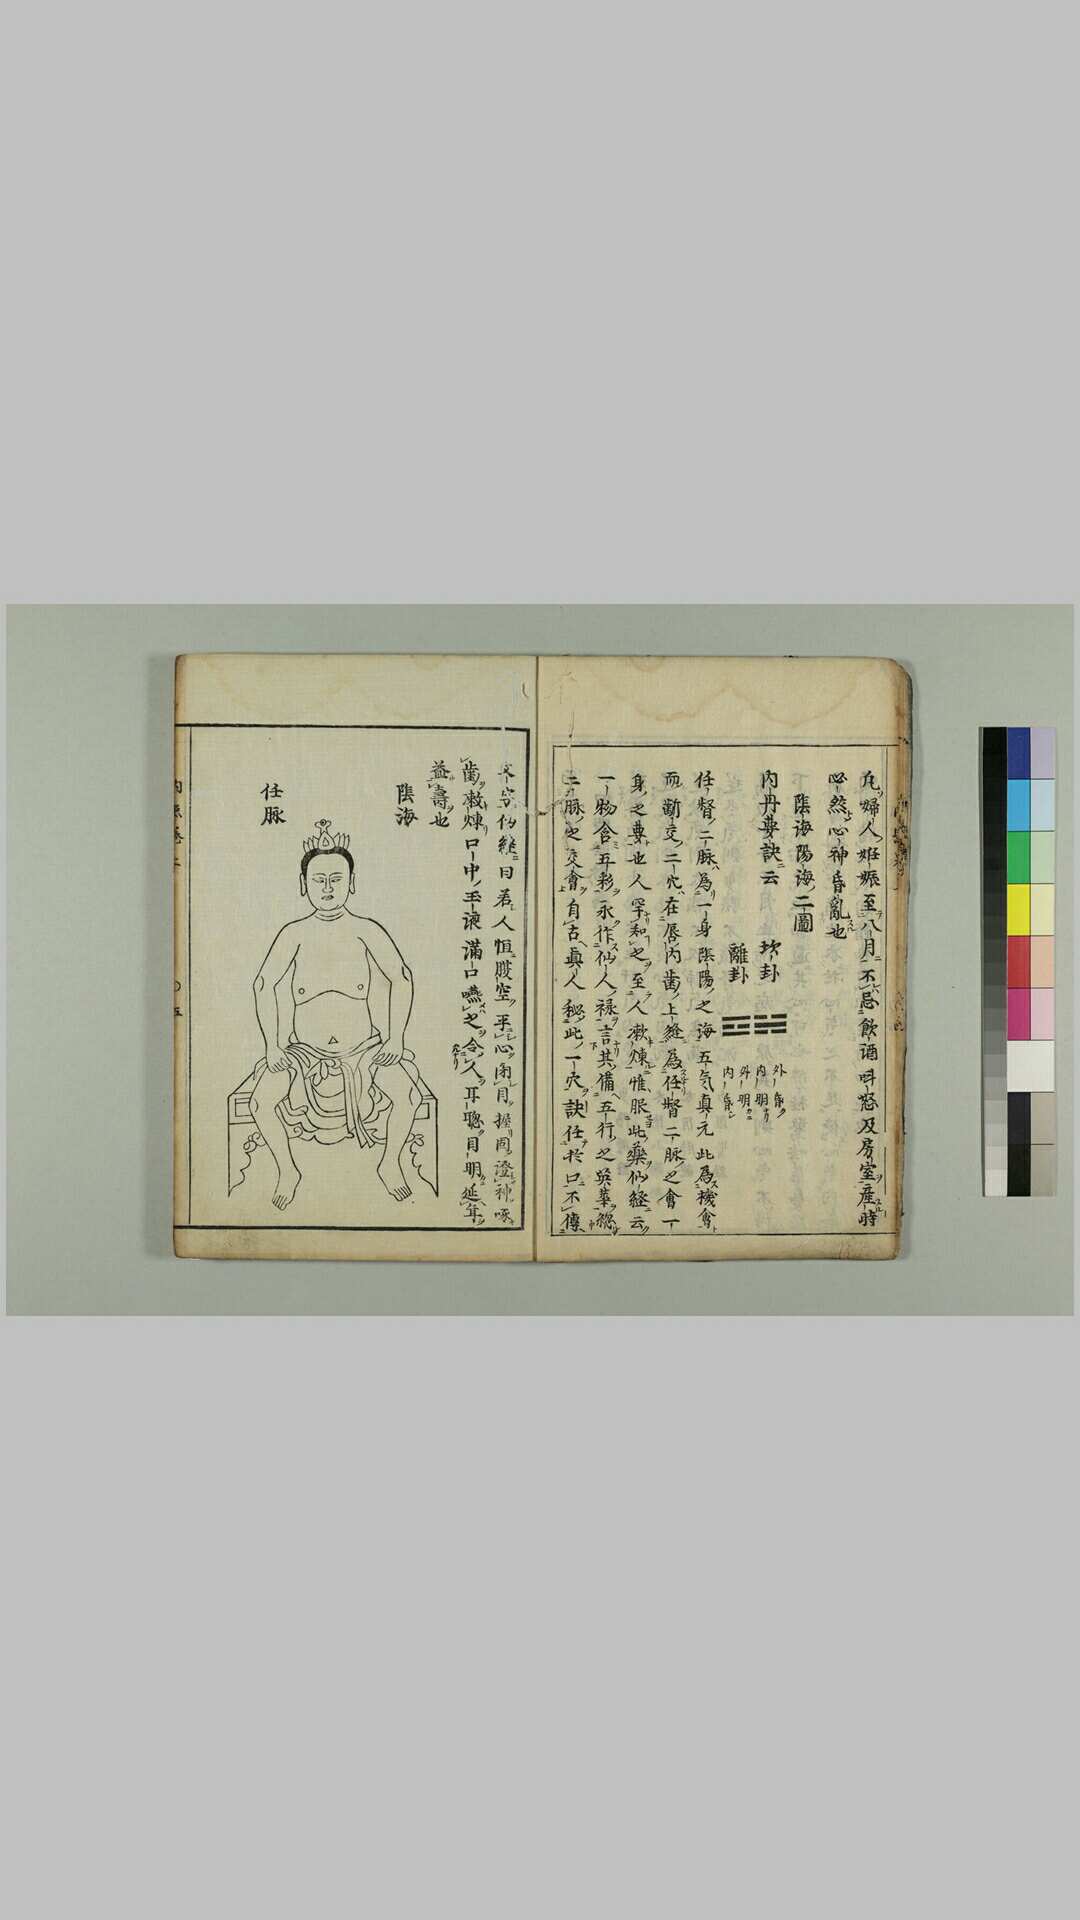 凡婦人姙娠至八月不忌飲酒呌怒及房室産時
必然心神昏亂也
陰海陽海二圖
内丹要訣云
坎卦 ☵ 外昏 内明
離卦 ☲ 外明 内昏
任督二脉為一身陰陽之海五気真元此為機會
而斷交二穴在唇内歯上縫為任督二脉之會一
身之要也人罕知之至人漱煉惟服此藥仙経云
一物含五彩永作仙人禄言其備五行之英華総
二脉之交會自古真人秘此一穴訣任於口不傳
文字仙経曰若人恒腹空平心閉目握固澄神啄
歯漱煉口中玉液満口嚥之令人耳聰目明延年
益壽也
陰海
任脉